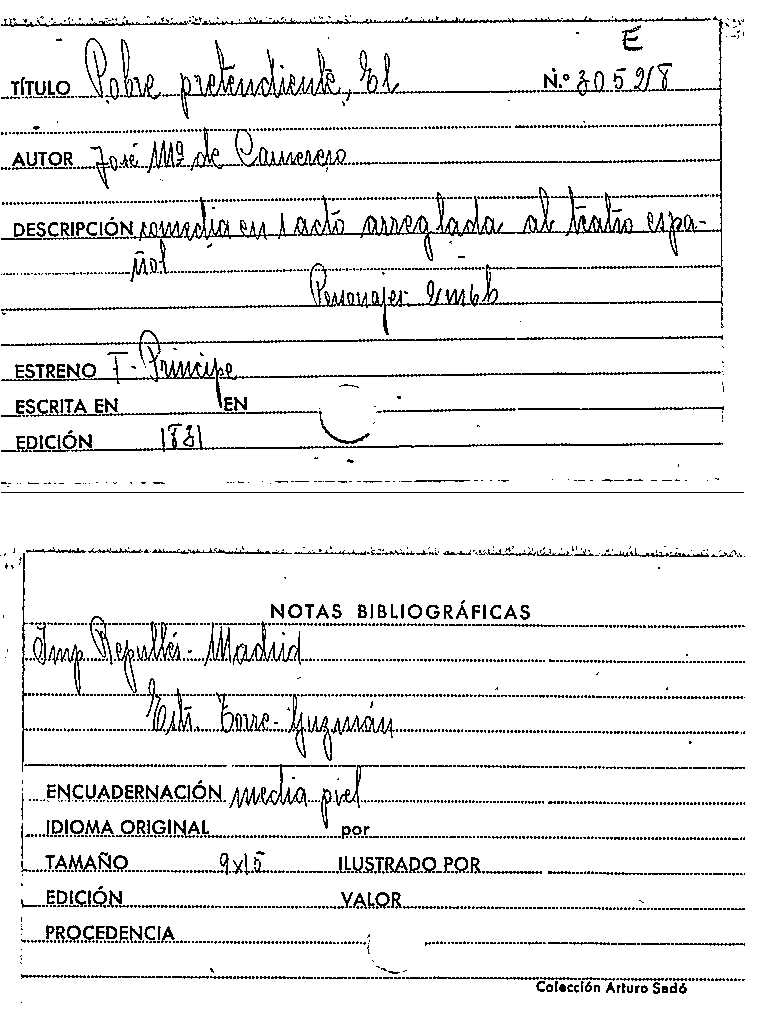 E
TÍTULO Pobre pretendiente, El N.º 305218
AUTOR José Mª de Carnerero
DESCRIPCIÓN comedia en 1 acto arreglada al teatro espa-
ñol
Personajes 2 m 6 h
ESTRENO T. Principe
ESCRITA EN EN
EDICIÓN 1831
NOTAS BIBLIOGRÁFICAS
Imp Repullés - Madrid
Estr. Torre - Guzmán
ENCUADERNACIÓN media piel
IDIOMA ORIGINAL por
TAMAÑO 9x15 ILUSTRADO POR
EDICIÓN VALOR
PROCEDENCIA
Colección Arturo Sedó